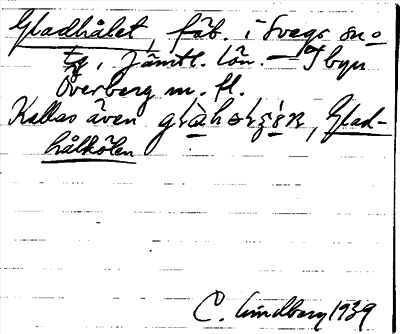 Gladhålet, fäb. i Svegs sn
tg, Jämtl. län. — I byn
Överberg m. fl.
Kallas även, Glad-
hålkölen
C. Lindberg 1939